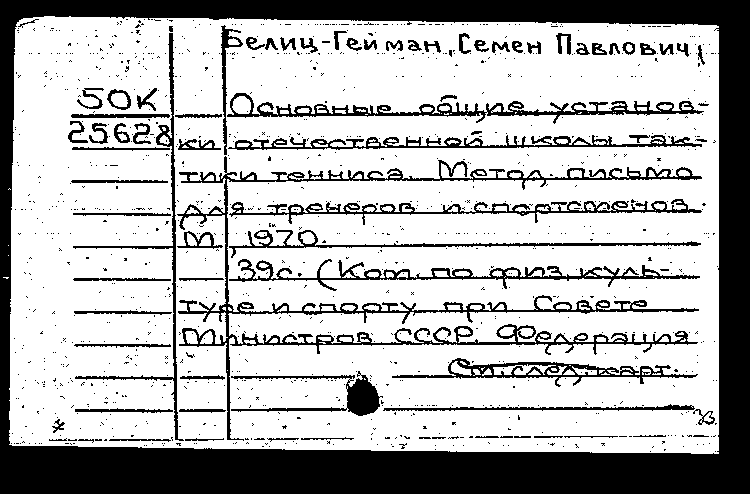 Белиц-Гейман, Семен Павлович
50К
25628
Основные общие установ-
ки отечественной школы так-
тики тенниса. Метод. письмо
для тренеров и спортсменов.
М., 1970.
39с. (Ком. по физ. куль-
туре и спорту при Совете
Министров СССР. Федерация
См. след. карт.